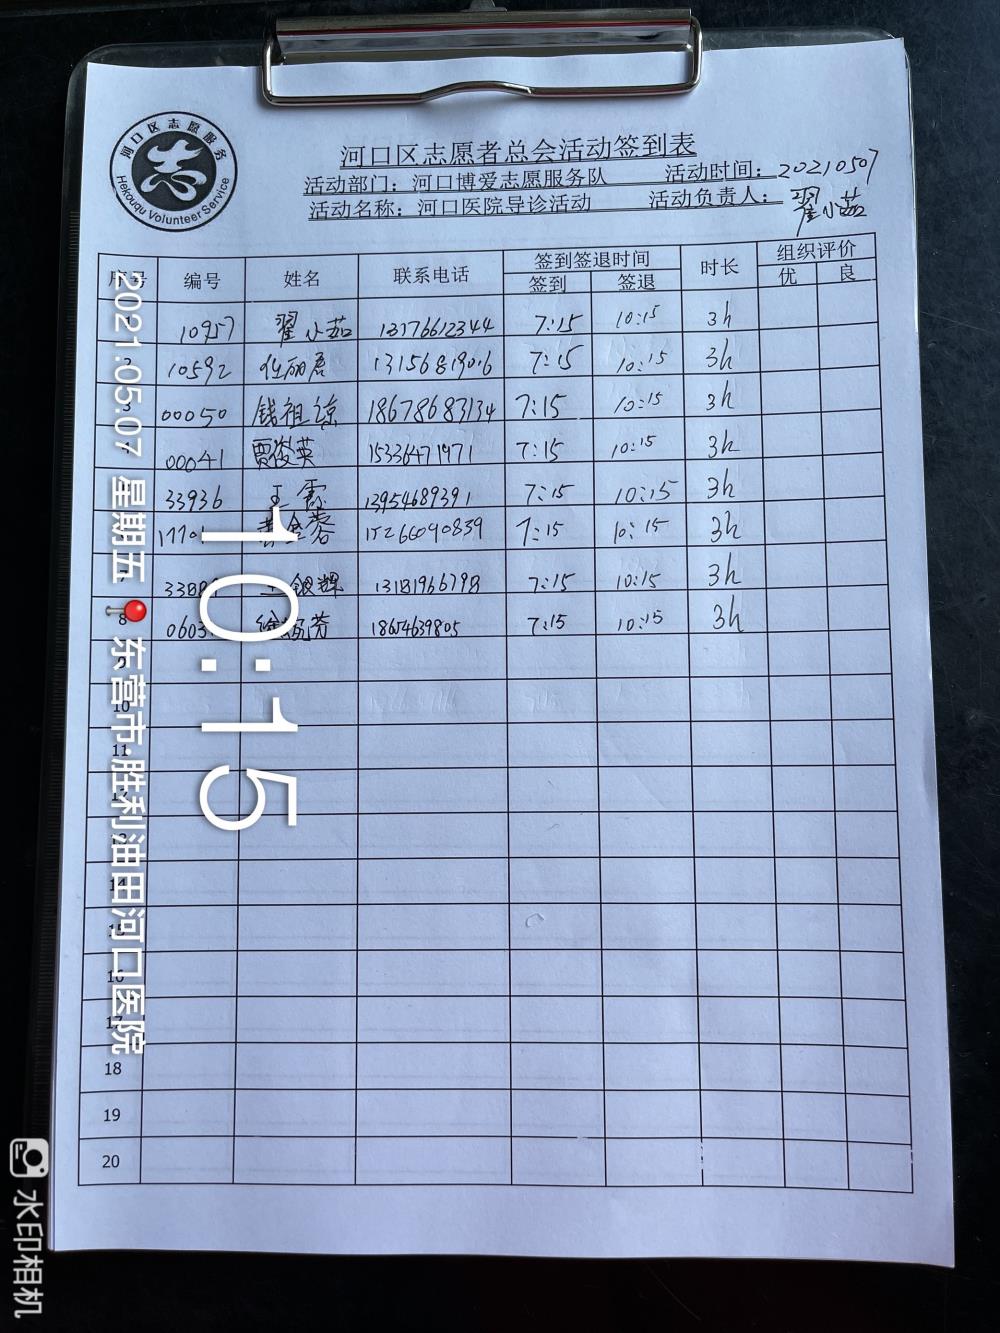 河口区志愿服务
Hekouqu Volunteer Service
河口区志愿者总会活动签到表
活动部门：河口博爱志愿服务队 活动时间：20210507
活动名称：河口医院导诊活动 活动负责人：翟小茹
序号 编号 姓名 联系电话 签到签退时间 时长 组织评价
签到 签退 优 良
1 10957 翟小茹 13176612344 7:15 10:15 3h
2 10592 任丽君 13156819016 7:15 10:15 3h
3 00050 钱祖谅 18678683134 7:15 10:15 3h
4 00041 贾俊英 15336471971 7:15 10:15 3h
33936 王霞 13954689391 7:15 10:15 3h
15266090839 7:15 10:15 3h
银辉 13181966798 7:15 10:15 3h
8 18654639805 7:15 10:15 3h
9
10
11
12
13
14
15
16
17
18
19
20
10:15
2021.05.07 星期五
东营市·胜利油田河口医院
水印相机